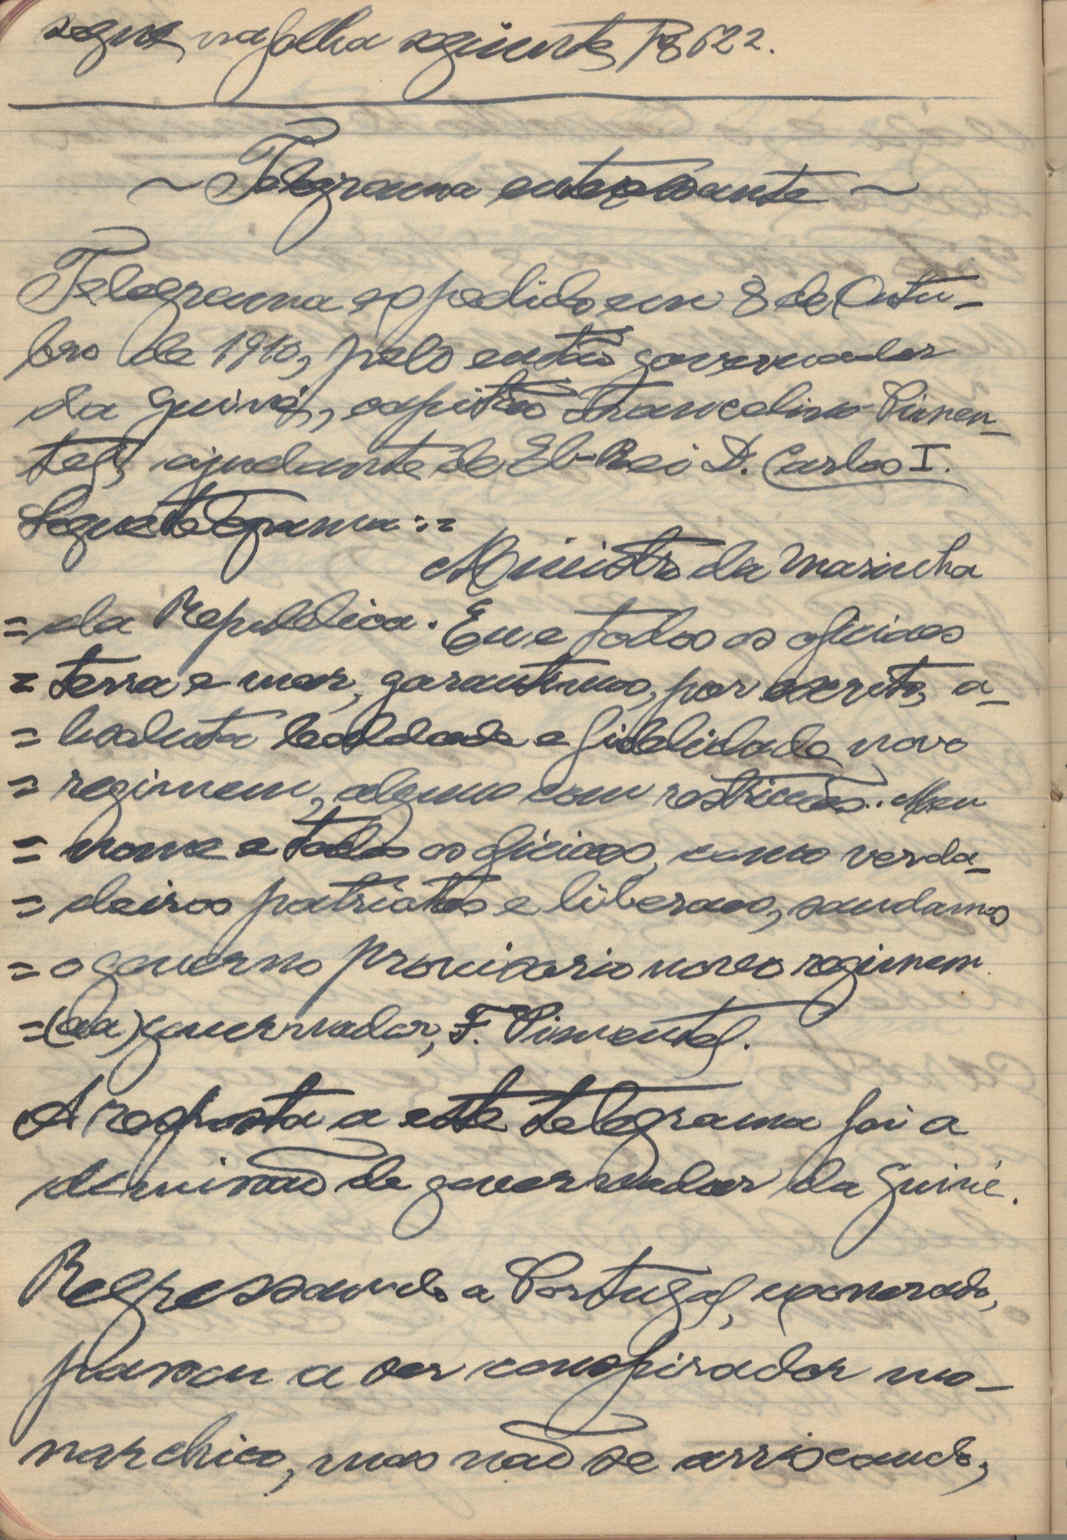 segue na folha seguinte, P8 622.
~ Telegrama enteresante ~
Telegrama expedido em 8 de Outu-
bro de 1910, pelo então governador
da Guiné, capitão Francelino Pimen-
tel, ajudante de El-Rei D. Carlos I.
Segue telegrama:=
Ministro da Marinha
= da Republica. Eu e todos os oficiaes
= terra e mar, garantimos, por escrito, a-
= bsoluta lealdade e fidelidade, novo
= regimem, alguns com restrições. Meu
= nome e todos os oficiaes, como verda-
= deiros patriotas e liberaes, saudamos
= o governo provisorio novo regimem.
= (aa) governador, F. Pimentel.
A resposta a este telegrama foi a
demissão de governador da Guiné.
Regressando a Portugal, exonerado,
passou a ser conspirador mo-
narchico, mas não se arriscando,